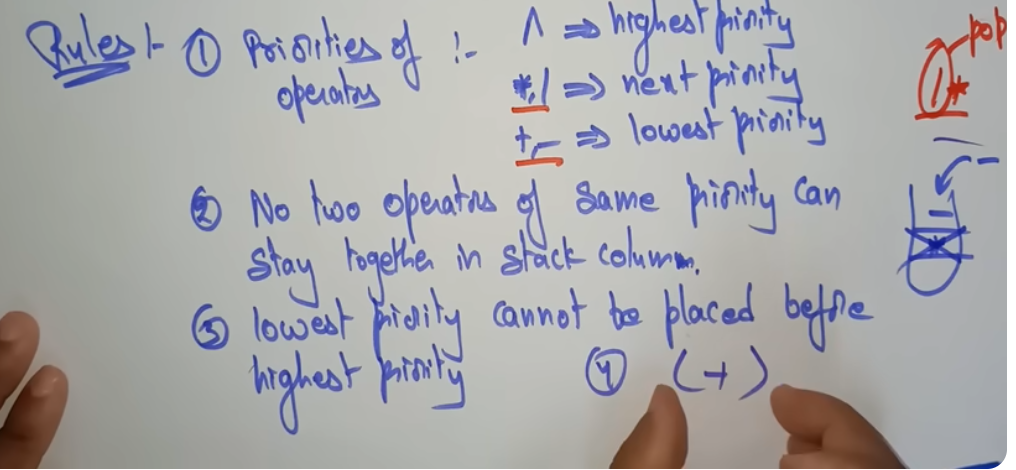 Rules :- ① Priorities of operators :- ^ ⇒ highest priority
*, / ⇒ next priority
+, - ⇒ lowest priority
② No two operators of same priority can
stay together in stack column.
③ lowest priority cannot be placed before
highest priority ④ (+)
pop
/ *
-
-
*